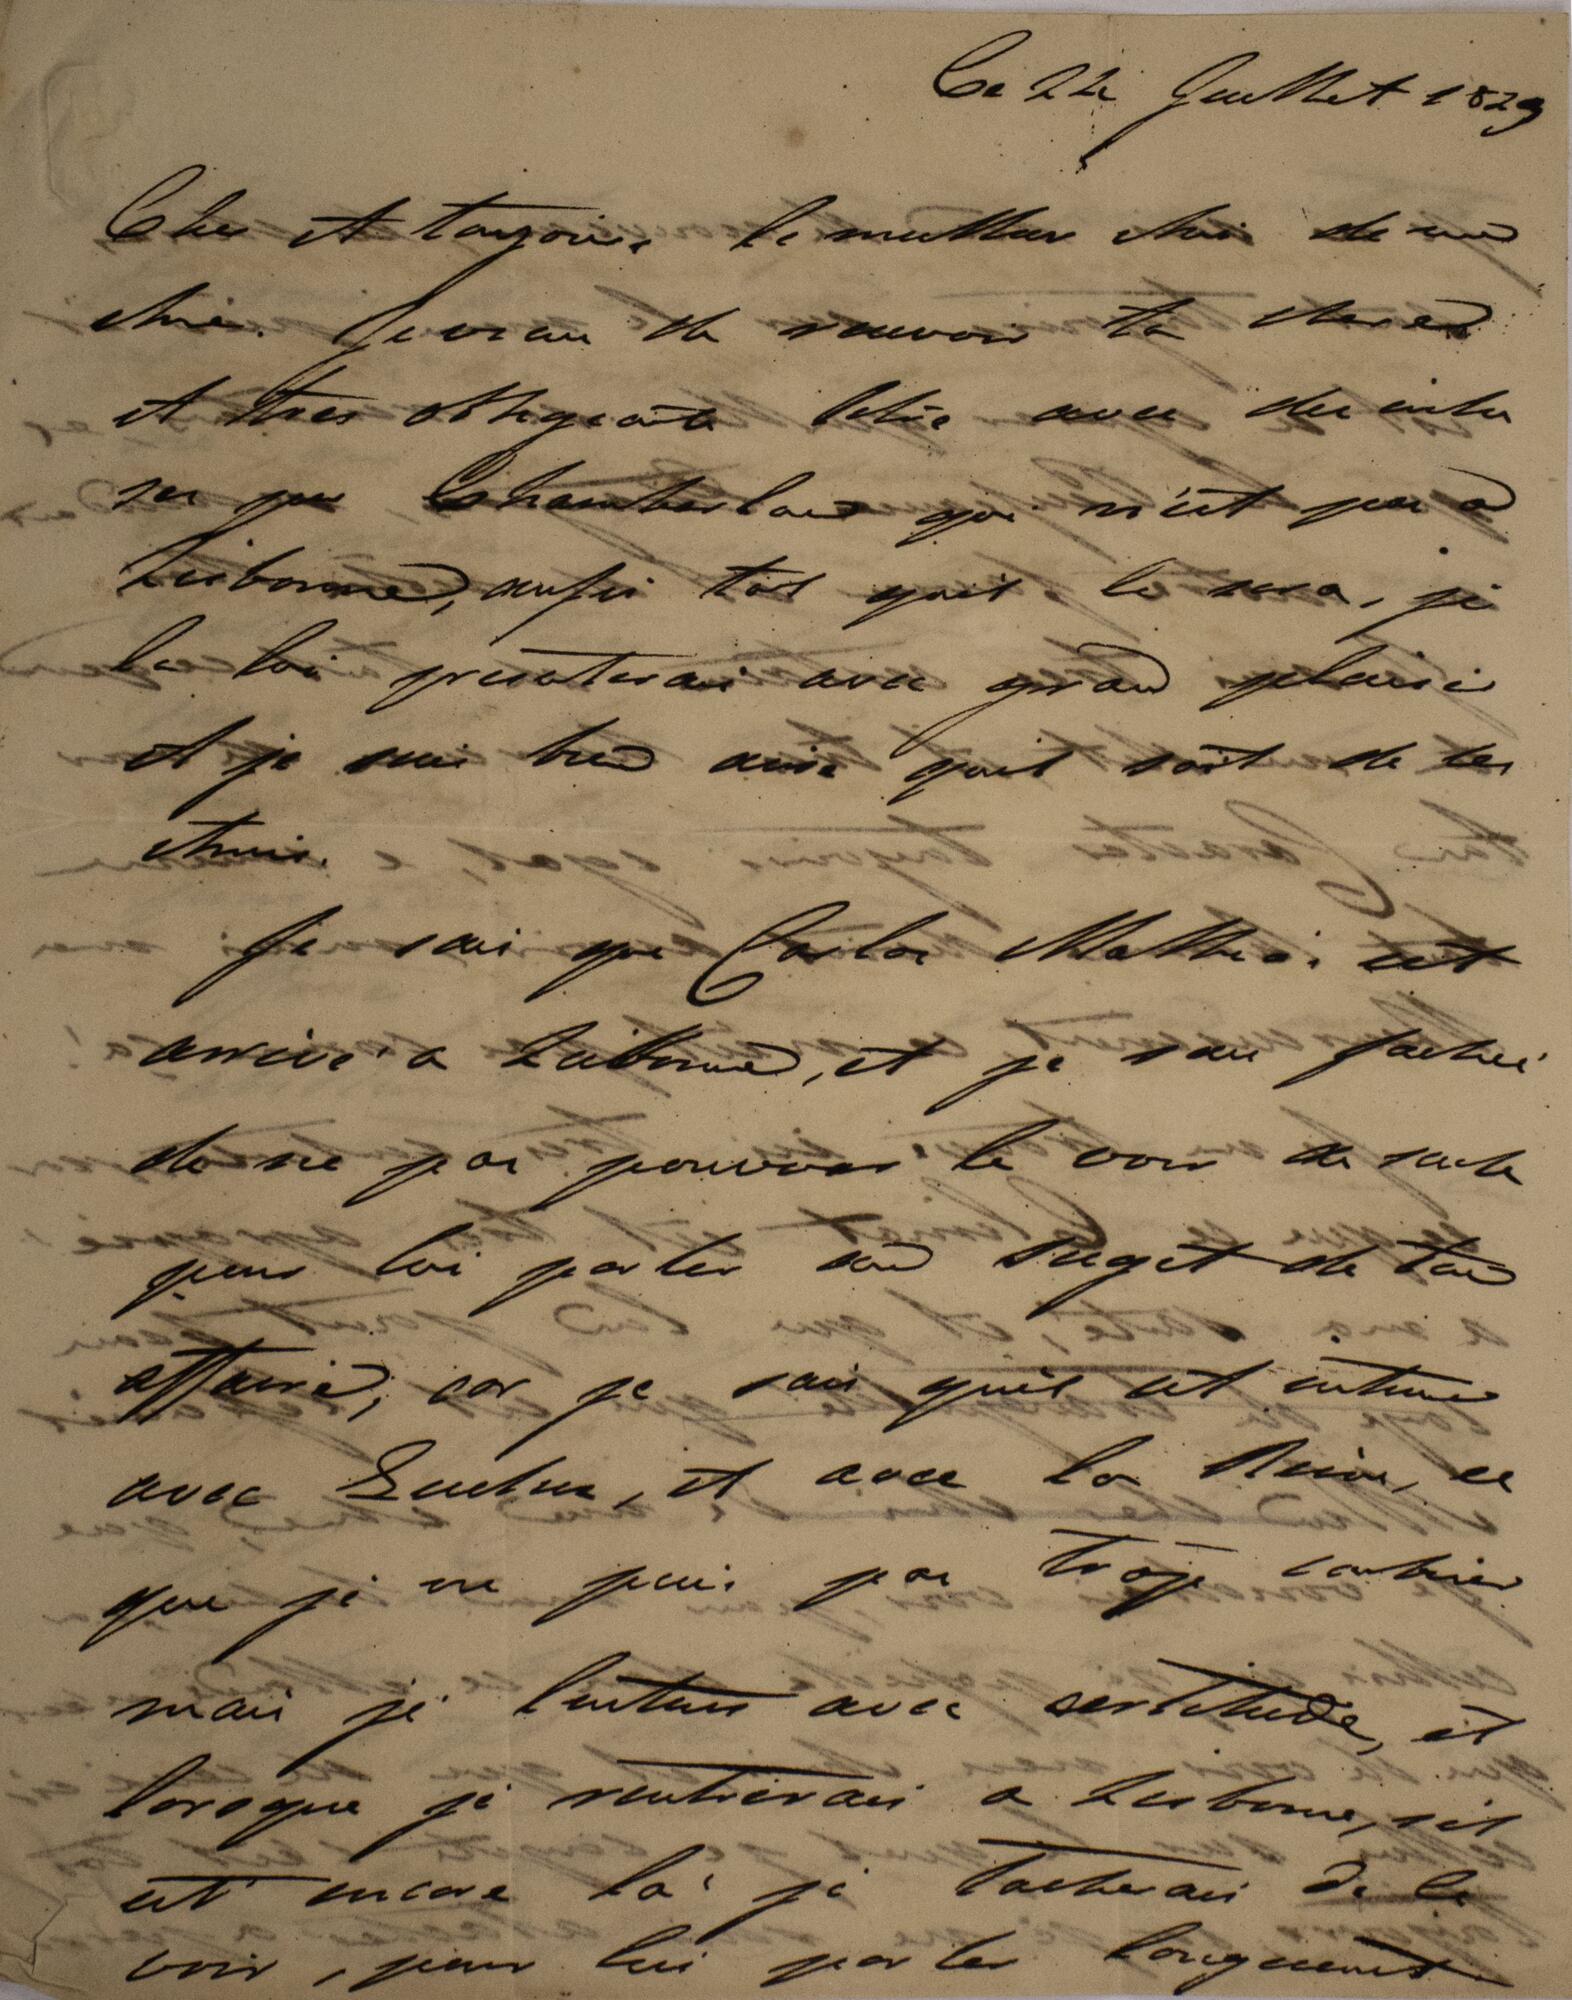 Ce 22 Juillet 1829
Cher et toujours le meillieur Ami de mes
Amis. Je vien de recevoir ta chere
et tres obligeante letre avec
par Chamberland qui n'est pas a
Lisbonne, aussi tot quil le sera, je
la lui presenterai avec grand plaisir
et je suis bien aise quil soit de tes
Amis.
Je sais que Carlos Mathias est
arrivé a Lisbonne, et je suis faché
de ne pas pouvoir le voir de suite
pour lui parler au suget de ton
affaire, car je sais quil est intime
avec et avec la Reine, ce
que je ne puis pas trop
mais je avec sertitude, et
lorsque je rentrerais a Lisbonne, s'il
est encore la' je tacherais de le
voir, pour lui parler longuement